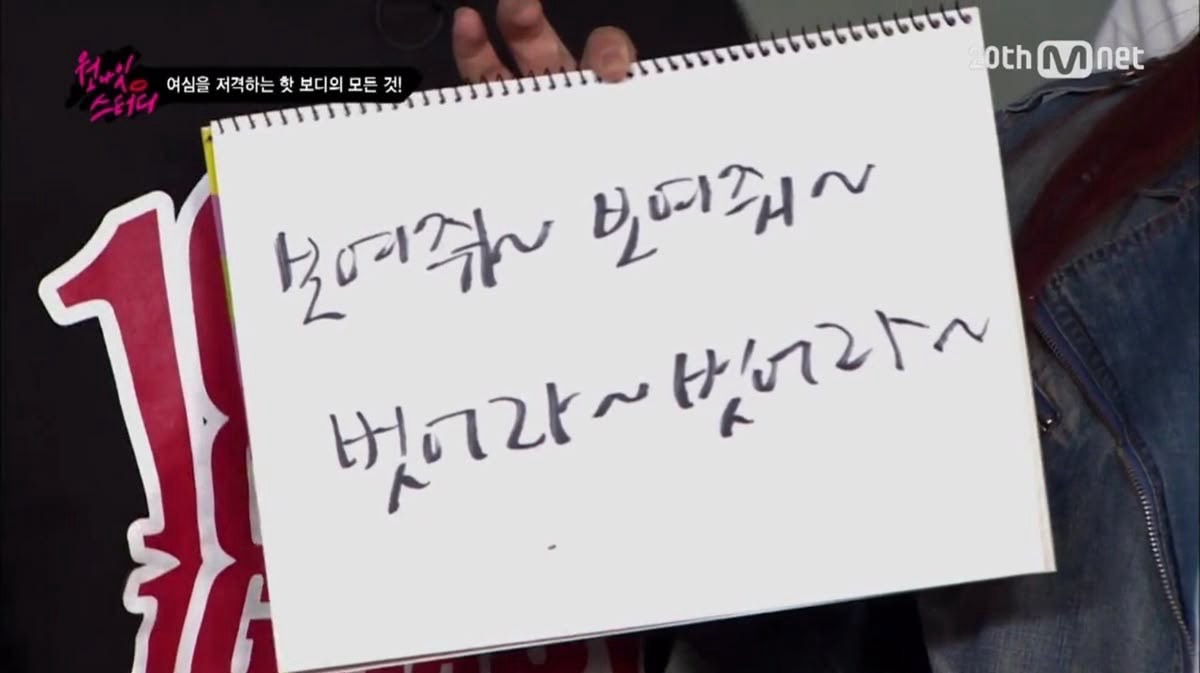 원나잇
스터디
여심을 저격하는 핫 보디의 모든 것!
20th Mnet
보여줘~ 보여줘~
벗어라~ 벗어라~